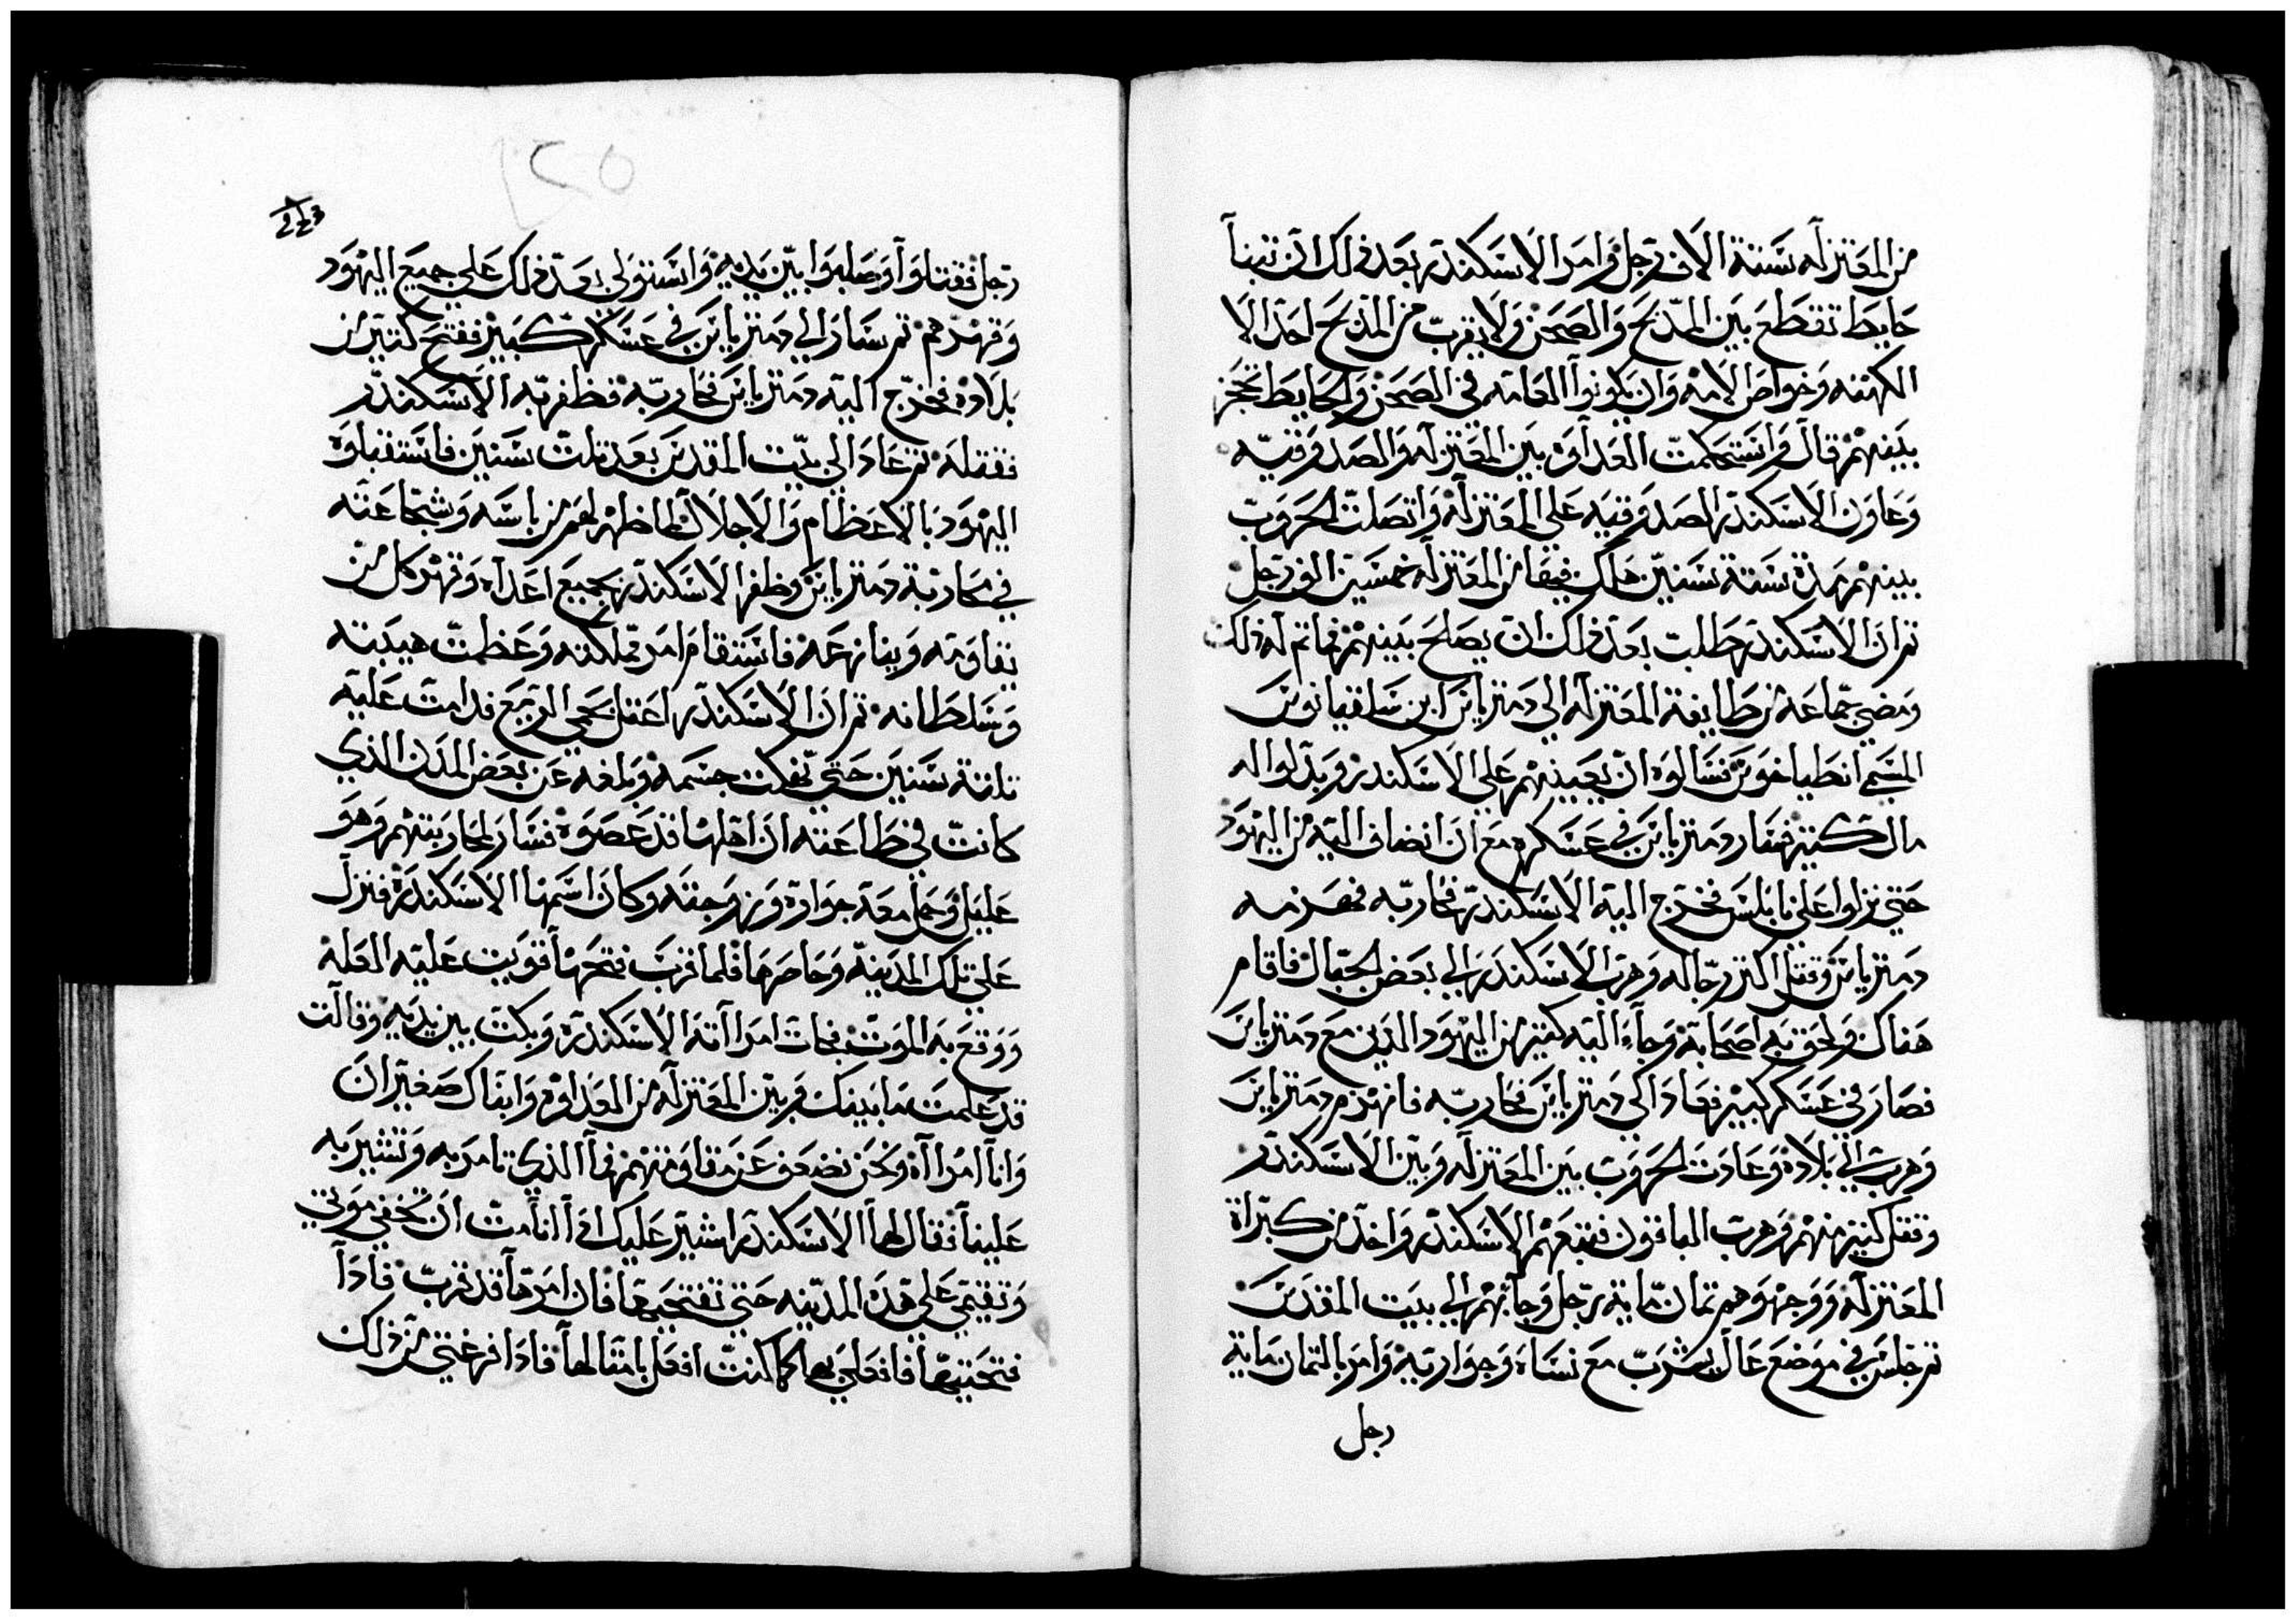 من المعتزله ستة الاف رجل وامر الاسكندر بعد ذلك ان تبنا
حايط تقطع بين المدبح والصحن ولا يقرب من المدبح احد الا
الكهنه وخواص الامه وان يكونوا العامه في الصحن والحايط تحجز
بينهم قال واستحكمت العداوه بين المعتزله والصدوقيه
وعاون الاسكندر الصدوقيه على المعتزله واتصلت الحروب
بينهم مدة ستة سنين هلك فيها من المعتزله خمسين الف رجل
ثم ان الاسكندر طلب بعد ذلك ان يصلح بينهم فما تم له ذلك
ومضي جماعه من طايفة المعتزله الي دمترياس ابن سلقيانوس
المسمي انطياخوس فسالوه ان يعينهم على الاسكندر وبدلوا له
مال كتير فسار دمترياس في عسكره مع ان انضاف اليه من اليهود
حتي نزلوا على نابلس فخرج اليه الاسكندر فحاربه فهزمه
دمترياس وقتل اكتر رجاله وهرب الاسكندر الي بعض الجبال فاقام
هناك ولحق به اصحابه وجاء اليه كتير من اليهود الدين مع دمترياس
فصار في عسكر كبير فعاد الى دمترياس فحاربه فانهزم دمترياس
وهرب الي بلاده وعادت الحروب بين المعتزله وبين الاسكندر
وقتل كتير منهم وهرب الباقون فتبعهم الاسكندر واخد من كبراة
المعتزله ووجه وهم تمان ماية رجل وجابهم الي بيت المقدس
ثم جلس في موضع عال يشرب مع نساه وجواريه وامر بالتمان ماية
رجل
رجل فقتلوا وصلبوا بين يديه واستولى بعد ذلك على جميع اليهود
وقهرهم ثم سار الي دمترياس في عسكر كبير ففتح كتير من
بلاده فخرج اليه دمترياس فحاربه فظفر به الاسكندر
فقتله ثم عاد الى بيت المقدس بعد تلت سنين فاستقبلوه
اليهود بالاعظام والاجلال لما ظهر لهم من باسه وشجاعته
في محاربة دمترياس وظفر الاسكندر بجميع اعداه وقهر كل من
يقاومه وينازعه فاستقام امر مملكته وعظمت هيبته
وسلطانه ثم ان الاسكندر اعتل بحمي الربع فدامت عليه
تلاتة سنين حتي نهكت جسمه وبلغه عن بعض المدن الذي
كانت في طاعته ان اهلها قد عصوه فسار لمحاربتهم وهو
عليل وحمل معه جواره وزوجته وكان اسمها الاسكندرة فنزل
علي تلك المدينه وحاصرها فلما قرب فتحها قويت عليه العله
ووقع به الموت فجات امراته الاسكندرة وبكت بين يديه وقالت
قد علمت ما بينك وبين المعتزله من العداوه وابناك صغيران
وانا امراه ونحن نضعف عن مقاومتهم فما الذي تامر به وتشير به
علينا فقال لها الاسكندر اشير عليك ادا انا مت ان تخفي موتي
وتقيمي على هذه المدينه حتي تفتحيها فان امرها قد قرب فادا
فتحتيها فافعلي بها كما كنت افعل بامثالها فادا فرغتي من ذلك